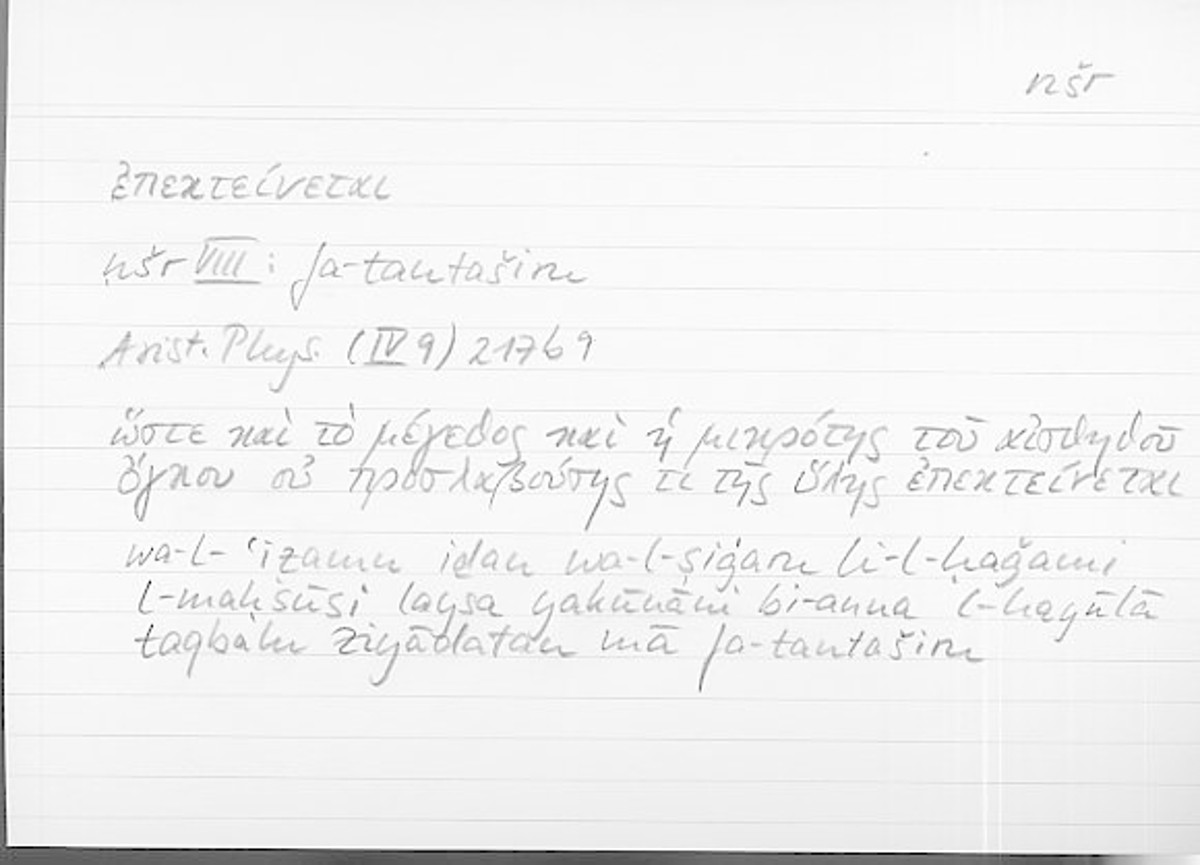 nšr
ἐπεκτείνεται
nšr VIII: fa-tantaširu
Arist. Phys. (IV 9) 217b9
ὥστε καὶ τὸ μέγεθος καὶ ἡ μικρότης τοῦ αἰσθηθοῦ
ὄγκου οὐ προσλαβούσης τι τῆς ὕλης ἐπεκτείνεται
wa-l-ʿiẓamu iḏan wa-l-ṣiġaru li-l-ḥaǧami
l-maḥsūsi laysa yakūnāni bi-anna l-hayūlā
taqbalu ziyādatan mā fa-tantaširu